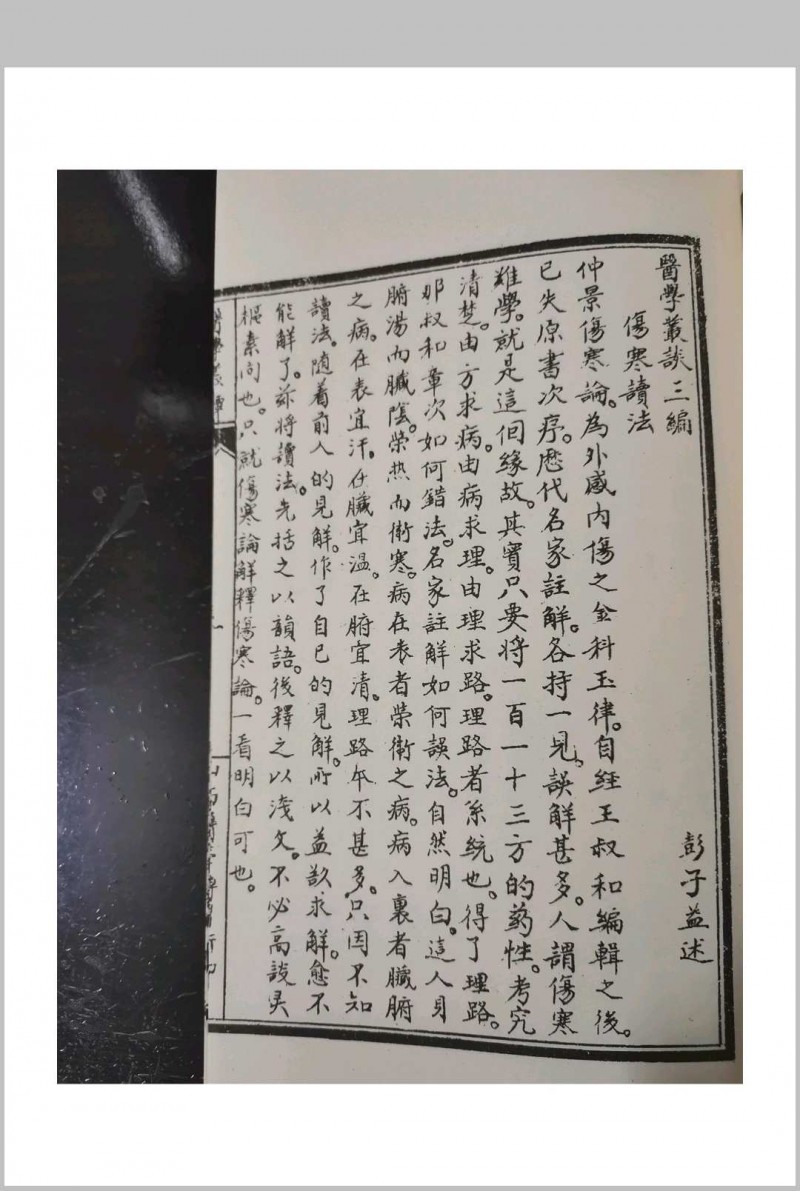 醫學叢談三編
彭子益述
傷寒讀法
仲景傷寒論。為外感內傷之金科玉律。自經王叔和編輯之後。
已失原書次序。歷代名家註解。各持一見。誤解甚多。人謂傷寒
難學。就是這個緣故。其實只要將一百一十三方的药性。考究
清楚。由方求病。由病求理。由理求路。理路者系統也。得了理路。
那叔和章次如何錯法。名家註解如何誤法。自然明白。這人身
腑湯而臟陰。榮热而衛寒。病在表者榮衛之病。病入裏者臟腑
之病。在表宜汗。在臟宜溫。在腑宜清。理路年不甚多。只因不知
讀法。随着前人的見解。作了自己的見解。所以益欲求解。愈不
能解了。茲將讀法。先括之以韻語。後釋之以淺文。不必高談灵
樞素问也。只就傷寒論解釋傷寒論。一看明白可也。